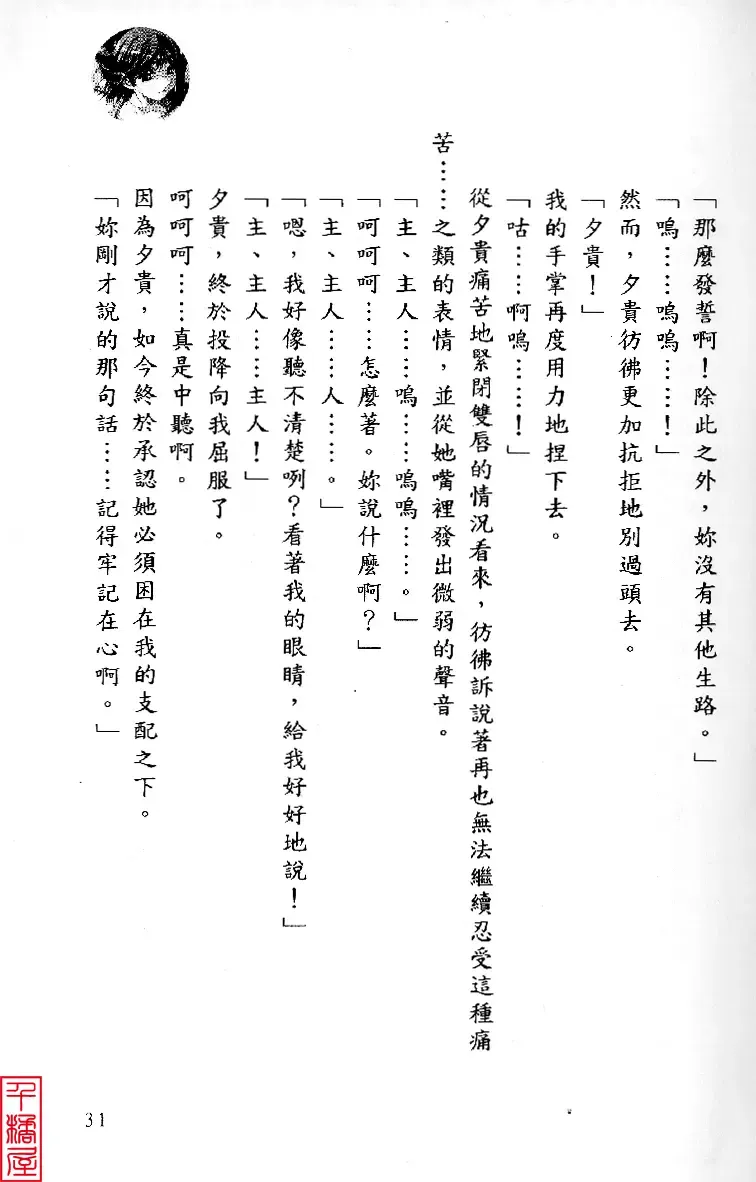 「那麼發誓啊！除此之外，妳沒有其他生路。」
「嗚……嗚嗚……！」
然而，夕貴彷彿更加抗拒地別過頭去。
「夕貴！」
我的手掌再度用力地捏下去。
「咕……啊嗚……！」
從夕貴痛苦地緊閉雙唇的情況看來，彷彿訴說著再也無法繼續忍受這種痛
苦……之類的表情，並從她嘴裡發出微弱的聲音。
「主、主人……嗚……嗚嗚……。」
「呵呵呵……怎麼著。妳說什麼啊？」
「主、主人……人……。」
「嗯，我好像聽不清楚咧？看著我的眼睛，給我好好地說！」
「主、主人……主人！」
夕貴，終於投降向我屈服了。
呵呵呵……真是中聽啊。
因為夕貴，如今終於承認她必須困在我的支配之下。
「妳剛才說的那句話……記得牢記在心啊。」
31
千橘屋